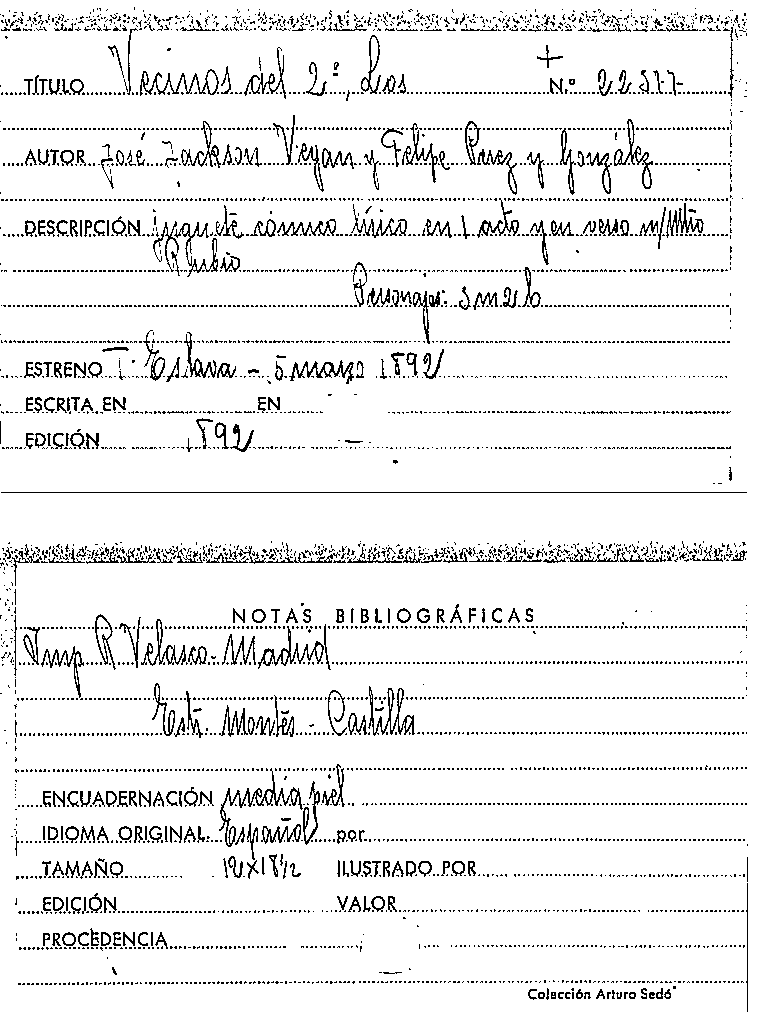 TÍTULO Vecinos del 2º, Los N.º 22577
AUTOR José Jackson Veyan y Felipe Perez y González
DESCRIPCIÓN juguete cómico lírico en 1 acto y en verso m/ Mtro
Rubio
Personajes: 3 m 2 h
ESTRENO T. Eslava - 5 marzo 1892
ESCRITA EN EN
EDICIÓN 1892
NOTAS BIBLIOGRÁFICAS
Imp R Velasco - Madrid
Estr. Montés - Castilla
ENCUADERNACIÓN media piel
IDIOMA ORIGINAL Español por
TAMAÑO 12x18½ ILUSTRADO POR
EDICIÓN VALOR
PROCEDENCIA
Colección Arturo Sedó